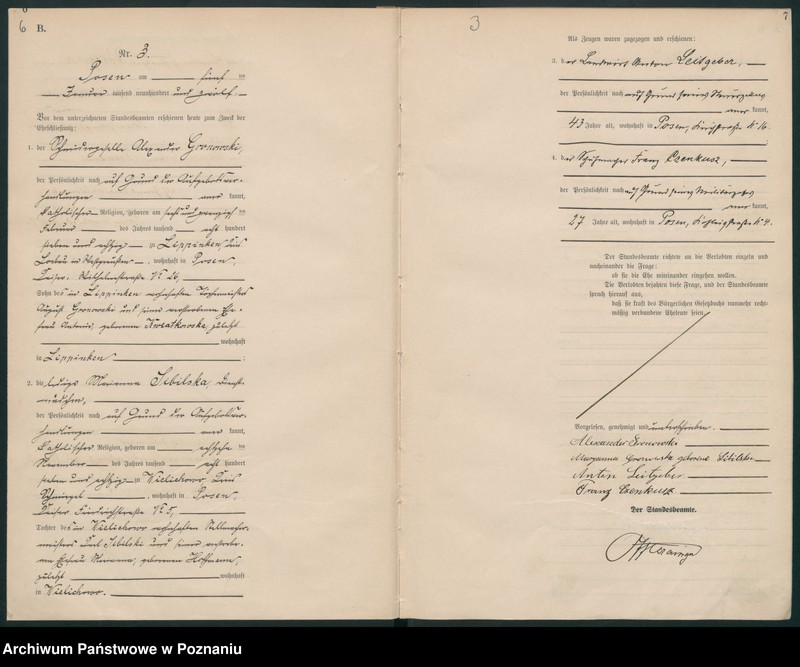 6 B.
Nr. 3.
Posen am fünf ten
Januar tausend neunhundert und zwölf.
Vor dem unterzeichneten Standesbeamten erschienen heute zum Zweck der
Eheschließung:
1. der Schneidergeselle Alexander Gronowski,
der Persönlichkeit nach auf Grund der Aufgebotsver-
handlungen aner kannt,
katholischer Religion, geboren am sechs und zwanzigsten
Februar des Jahres tausend acht hundert
sieben und achtzig in Lippinken, Kreis
Löbau in Westpreußen, wohnhaft in Posen,
Kaiser-Wilhelmstraße N: 26,
Sohn des in Lippinken wohnhaften
August Gronowski und seiner verstorbenen Ehe-
frau Antonie, geborenen Kwiatkowska, zuletzt
wohnhaft
in Lippinken
2. die ledige Marianna Sebilska, Dienst-
mädchen,
der Persönlichkeit nach auf Grund der Aufgebotsver-
handlungen aner kannt,
katholischer Religion, geboren am ten
November des Jahres tausend acht hundert
sieben und achtzig in Wielichowo, Kreis
Schmiegel, wohnhaft in Posen,
Friedrichstraße N: 5,
Tochter des in Wielichowo wohnhaften
meisters Sebilski und seiner verstorbe-
nen Ehefrau Marianna, geborenen Hoffmann,
zuletzt wohnhaft
in Wielichowo.
3
7
Als Zeugen waren zugezogen und erschienen:
3. der Landwirt Anton Leitgeber,
der Persönlichkeit nach auf Grund seines
aner kannt,
43 Jahre alt, wohnhaft in Posen, N: 16
4. der Schuhmacher Franz Czenkusz,
der Persönlichkeit nach auf Grund seines Militärpasses
aner kannt,
27 Jahre alt, wohnhaft in Posen, N: 4.
Der Standesbeamte richtete an die Verlobten einzeln und
nacheinander die Frage:
ob sie die Ehe miteinander eingehen wollen.
Die Verlobten bejahten diese Frage, und der Standesbeamte
sprach hierauf aus,
daß sie kraft des Bürgerlichen Gesetzbuchs nunmehr recht-
mäßig verbundene Eheleute seien.
Vorgelesen, genehmigt und unterschrieben.
Alexander Gronowski
Maryanna Gronowska geborene Sebilska
Anton Leitgeber
Franz Czenkusz
Der Standesbeamte.
Archiwum Państwowe w Poznaniu